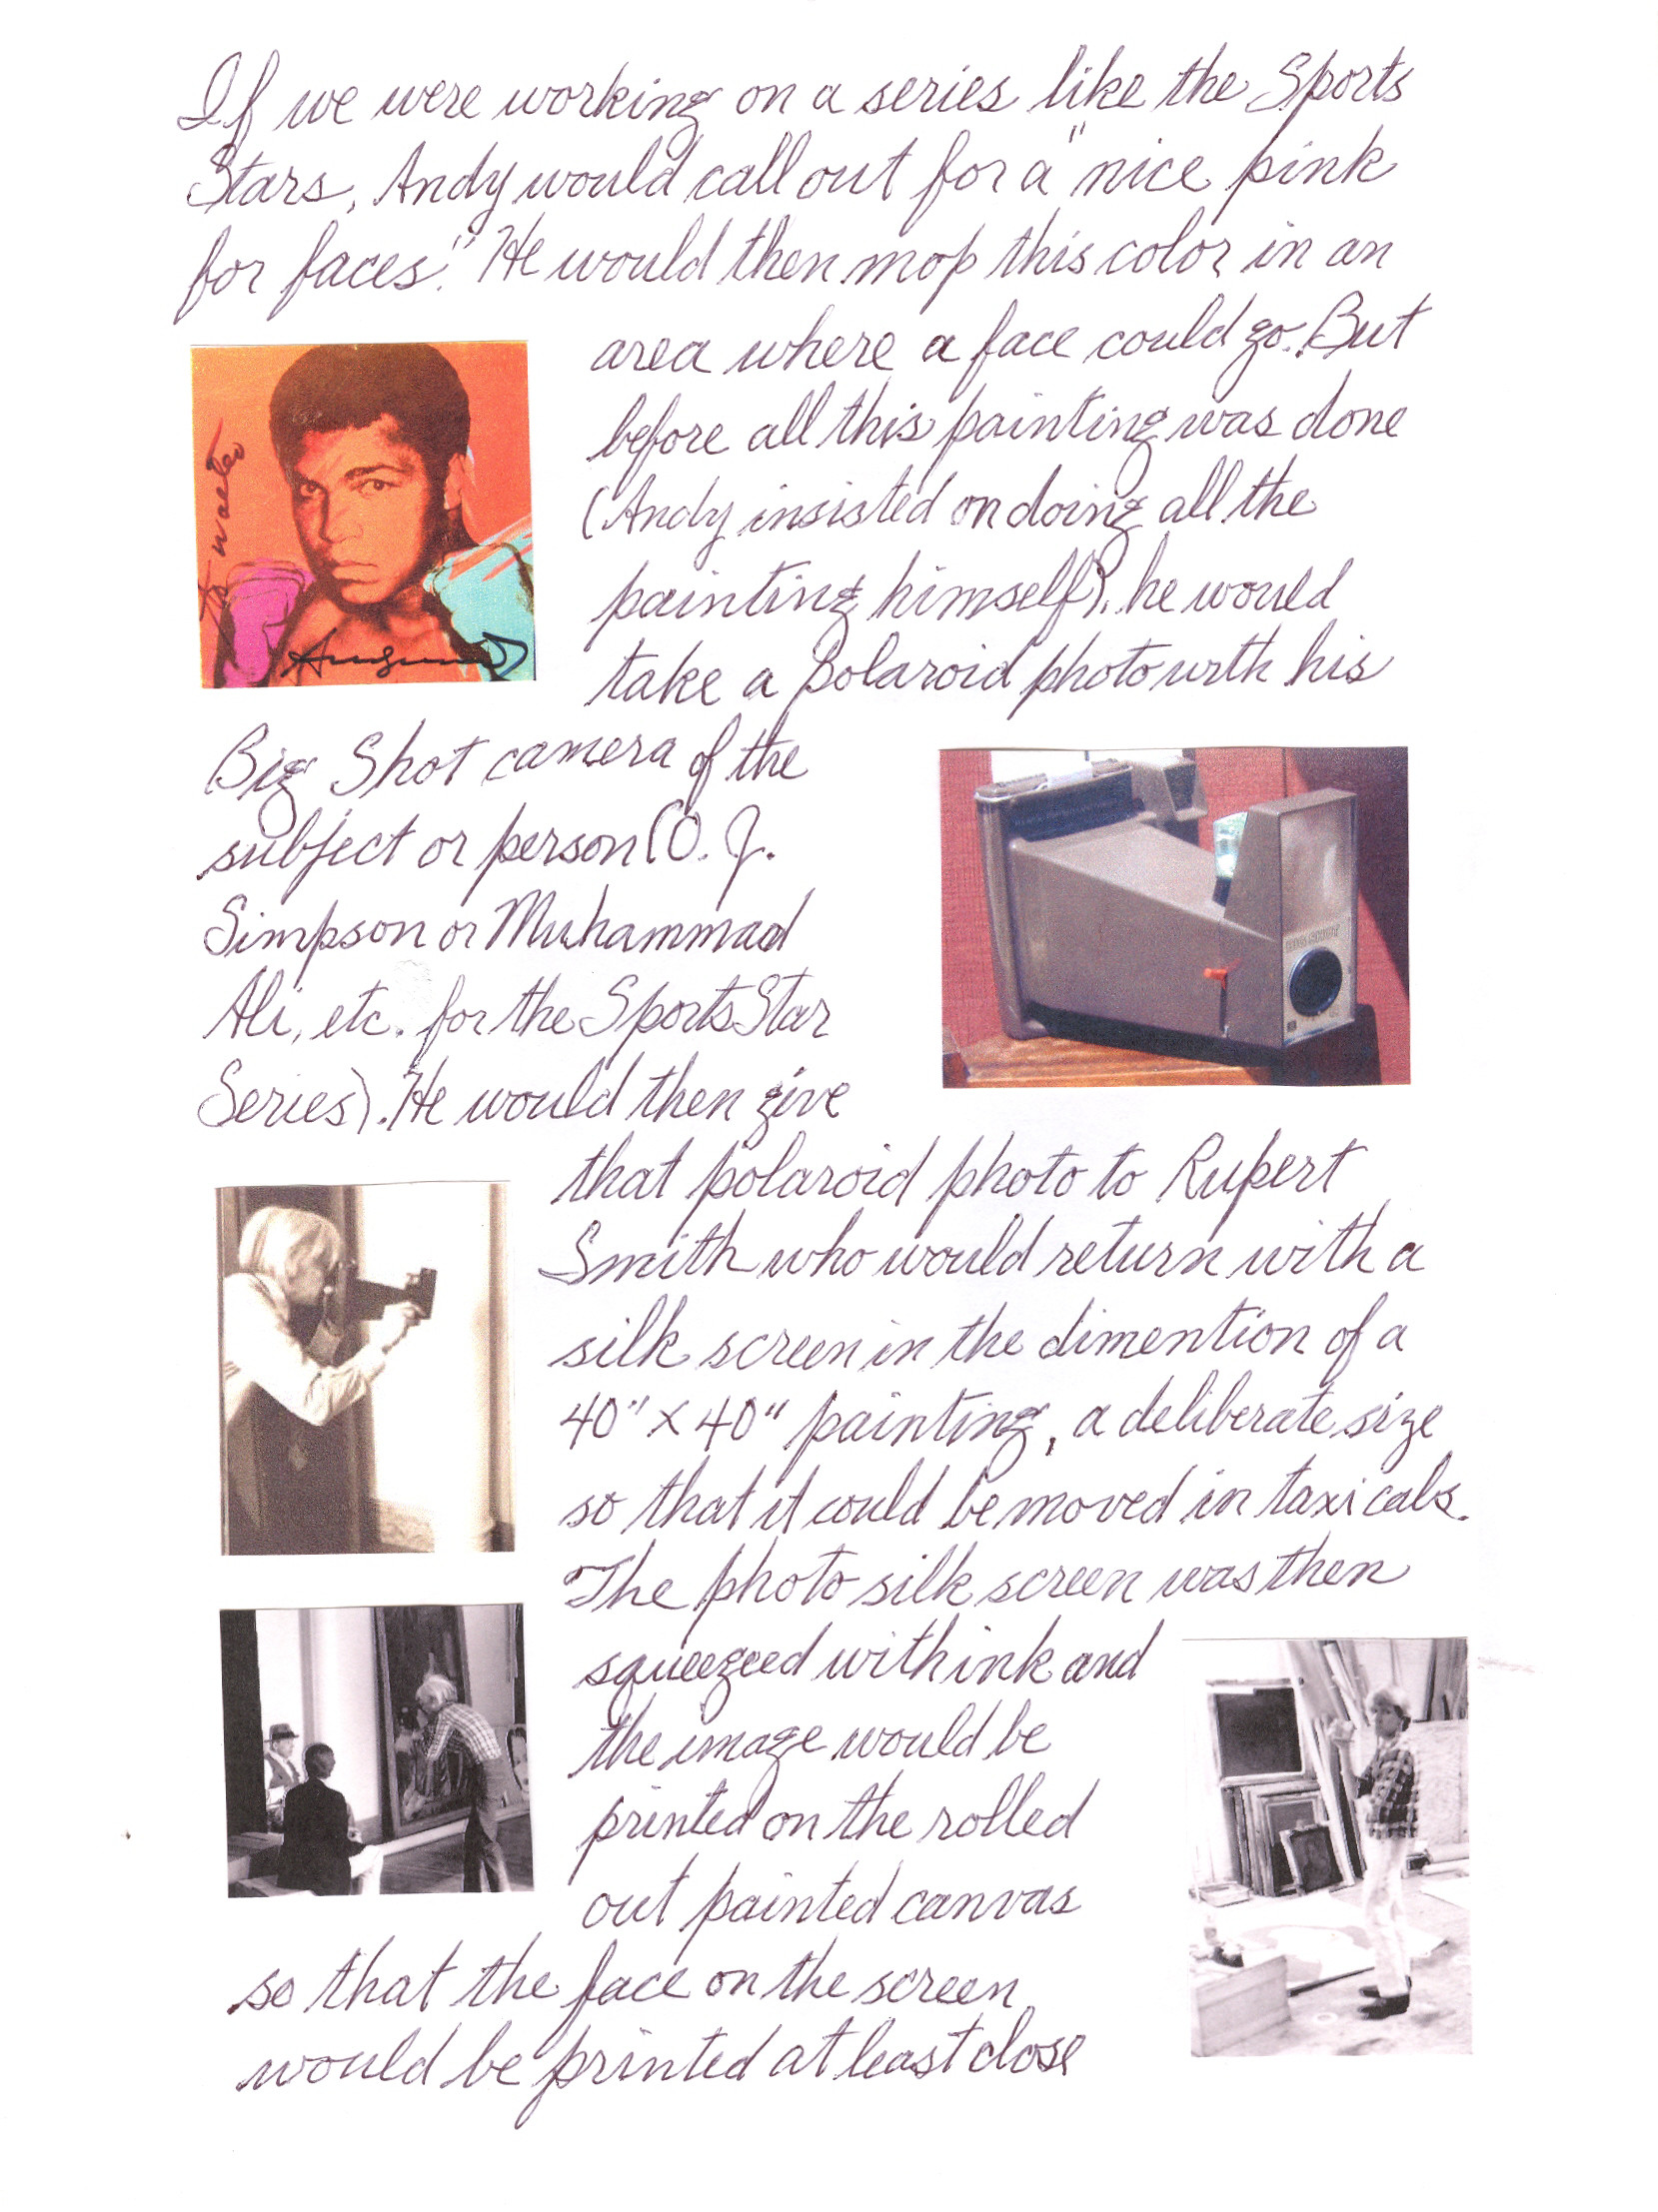 If we were working on a series like the Sports
Stars, Andy would call out for a "nice pink
for faces." He would then mop this color in an
area where a face could go. But
before all this painting was done
(Andy insisted on doing all the
painting himself), he would
take a polaroid photo with his
to walter
Big Shot camera of the
subject or person (O. J.
Simpson or Muhammad
Ali, etc. for the Sports Star
Series). He would then give
BIG SHOT
that polaroid photo to Rupert
Smith who would return with a
silk screen in the dimention of a
40" x 40" painting, a deliberate size
so that it could be moved in taxi cabs.
The photo silk screen was then
squeegeed with ink and
the image would be
printed on the rolled
out painted canvas
so that the face on the screen
would be printed at least close